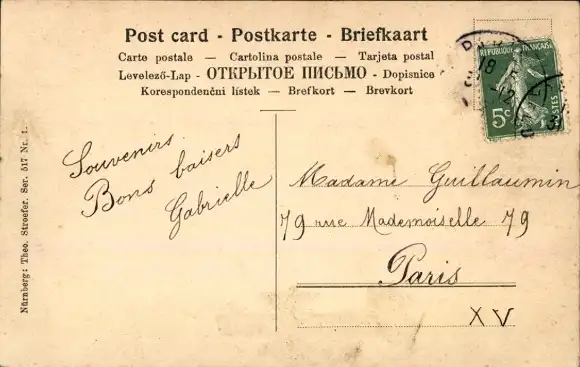 Post card - Postkarte - Briefkaart
Carte postale — Cartolina postale — Tarjeta postal
Levelező-Lap - ОТКРЫТОЕ ПИСЬМО - Dopisnice
Korespondenční lístek — Brefkort — Brevkort
RÉPUBLIQUE FRANÇAISE
5c
POSTES
18
12
Souvenirs.
Bons baisers
Gabrielle
Madame Guillaumin
79 rue Mademoiselle 79
Paris
XV
Nürnberg: Theo. Stroefer. Ser. 517 Nr. 1.